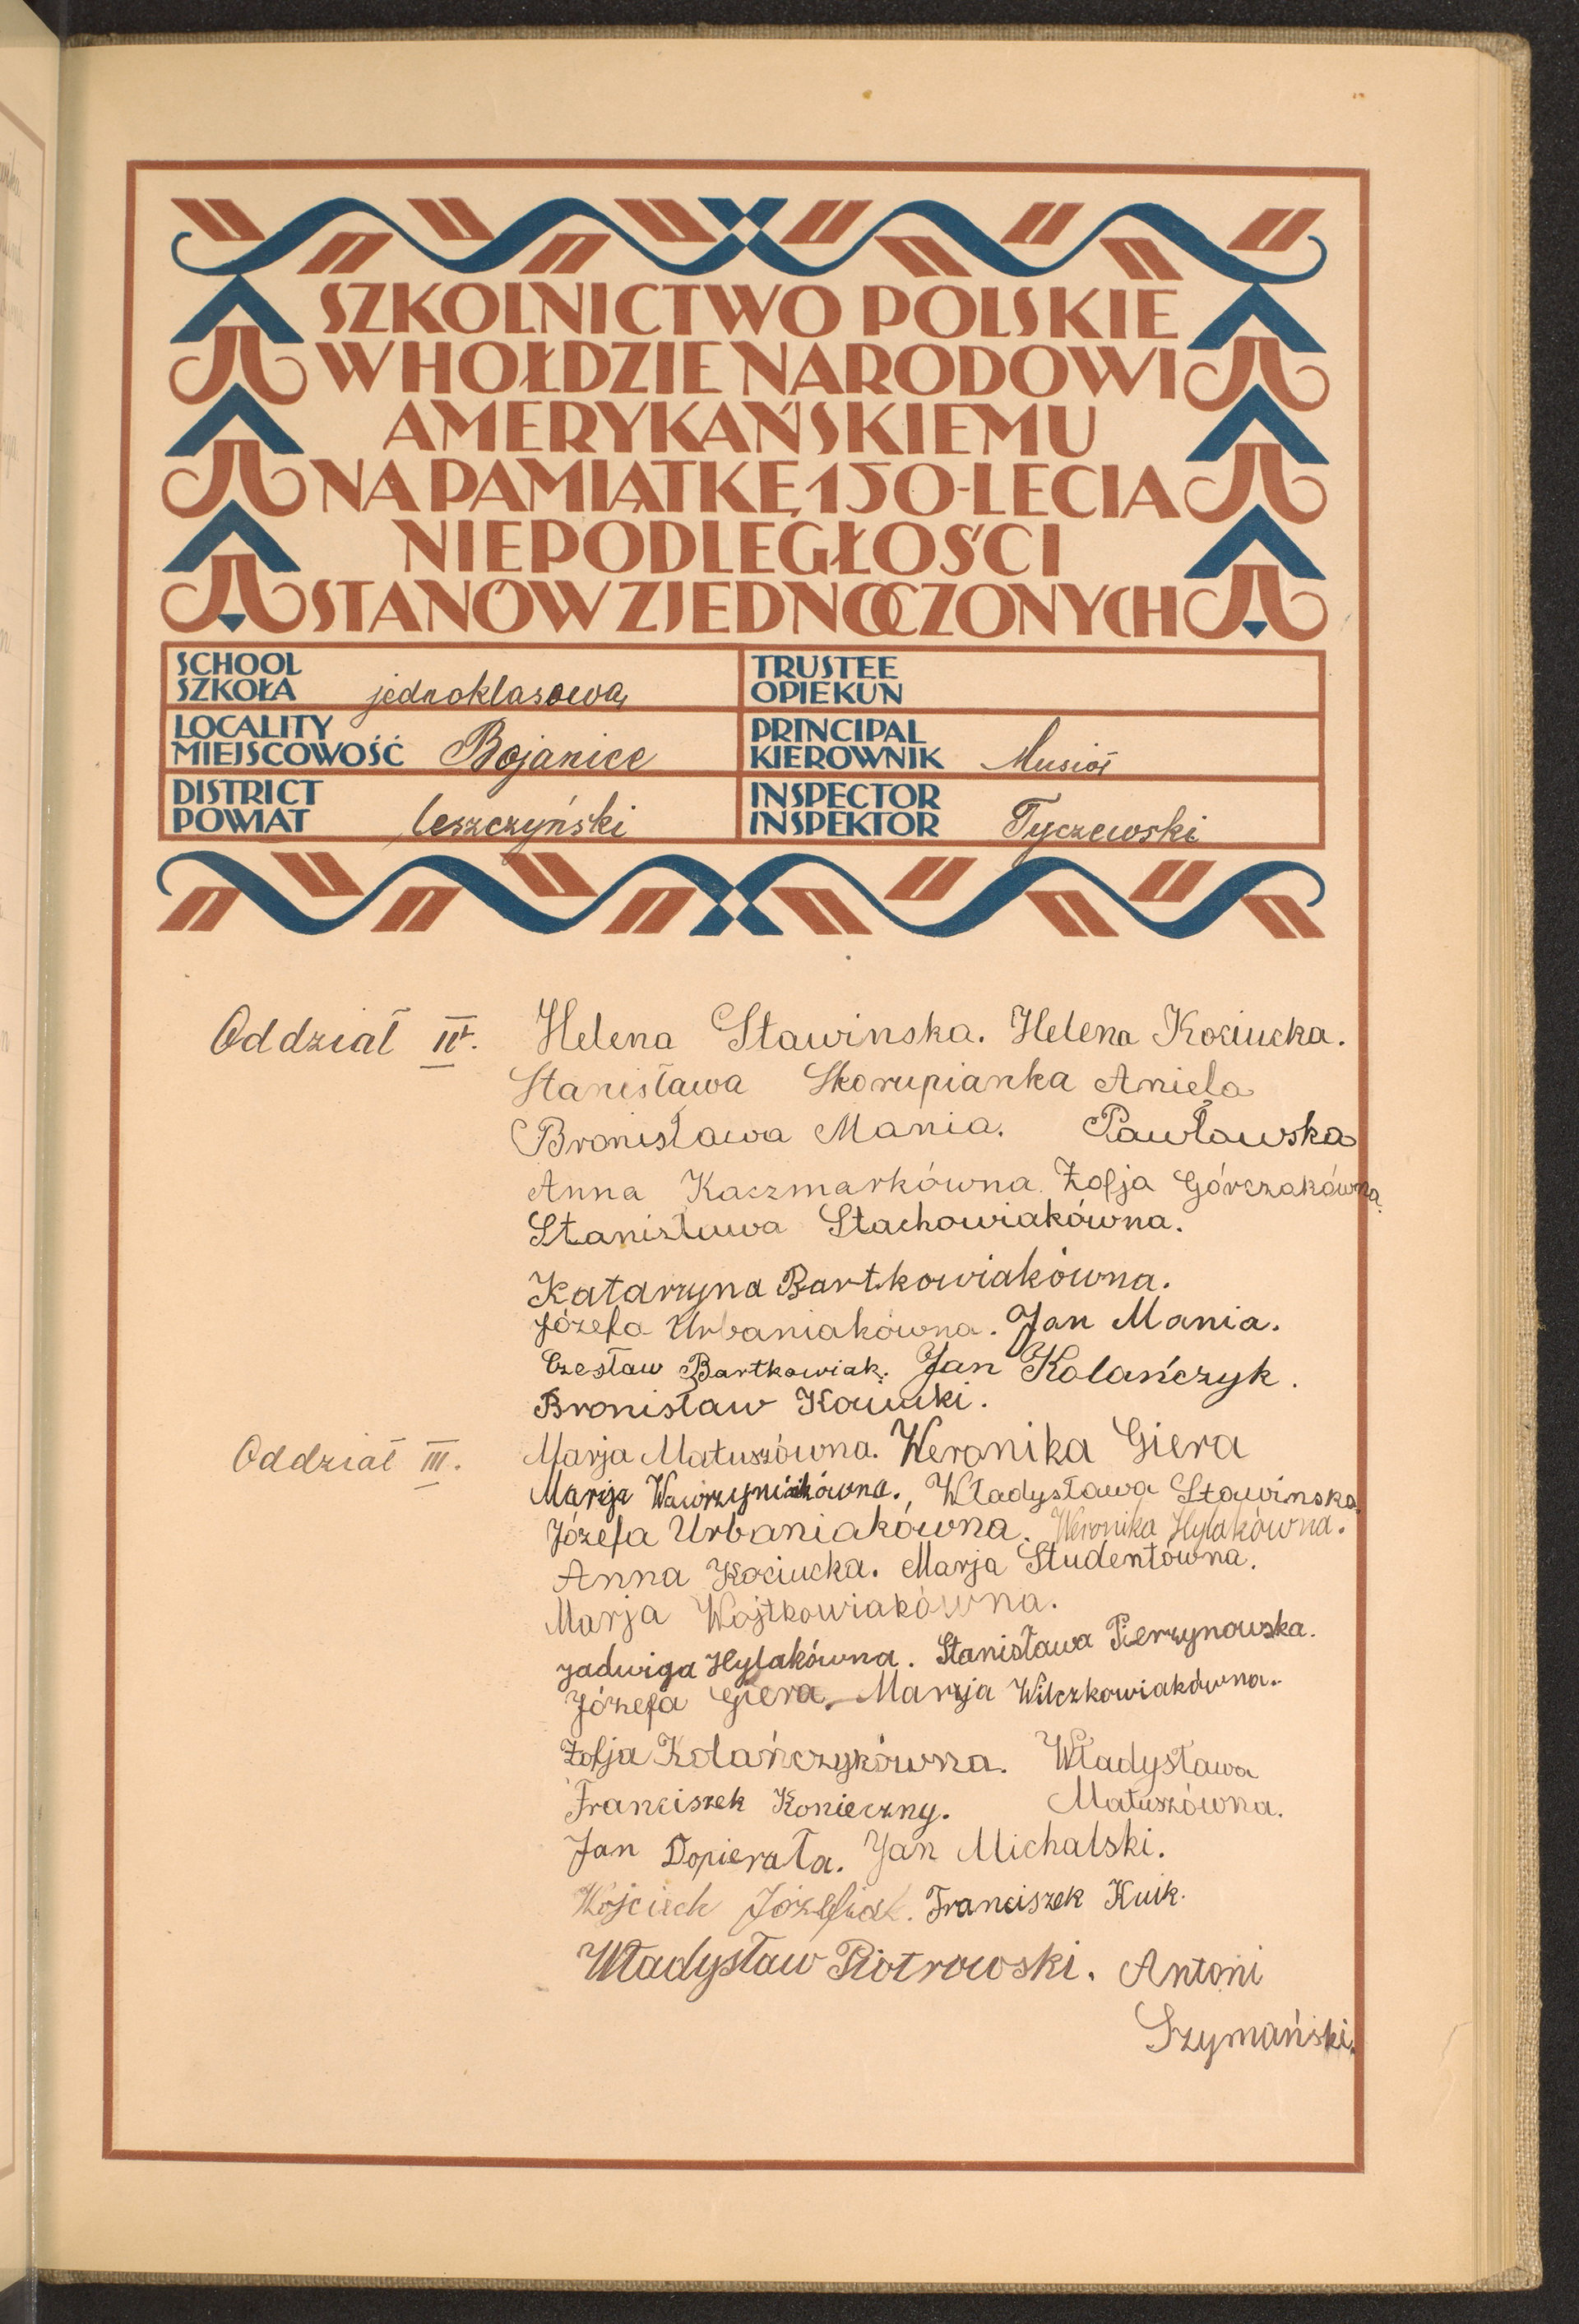 SZKOLNICTWO POLSKIE
W HOŁDZIE NARODOWI
AMERYKAŃSKIEMU
NA PAMIĄTKĘ 150-LECIA
NIEPODLEGŁOŚCI
STANÓW ZJEDNOCZONYCH
SCHOOL
SZKOŁA jednoklasowa
TRUSTEE
OPIEKUN
LOCALITY
MIEJSCOWOŚĆ Bojanice
PRINCIPAL
KIEROWNIK Musioł
DISTRICT
POWIAT leszczyński
INSPECTOR
INSPEKTOR Tyczewski
Oddział IV. Helena Stawinska. Helena Kociucka.
Stanisława Skorupianka Aniela
Bronisława Mania. Pawławska
Anna Kaczmarkówna. Zofja Górczakówna.
Stanisława Stachowiakówna.
Katarzyna Bartkowiakówna.
Józefa Urbaniakówna. Jan Mania.
Czesław Bartkowiak. Jan Kolańczyk.
Bronisław Kociucki.
Oddział III. Marja Matuszówna. Weronika Giera
Marja Wawrzyniakówna., Władysława Stawinska.
Józefa Urbaniakówna. Weronika Hylakówna.
Anna Kociucka. Marja Studentówna.
Marja Wojtkowiakówna.
Jadwiga Hylakówna. Stanisława Pierzynowska.
Józefa Giera. Marja Wilczkowiakówna.
Zofja Kolańczykówna. Władysława
Franciszek Konieczny. Matuszówna.
Jan Dopierała. Jan Michalski.
Wojciech Józefiak. Franciszek Kuik.
Władysław Piotrowski. Antoni
Szymański.